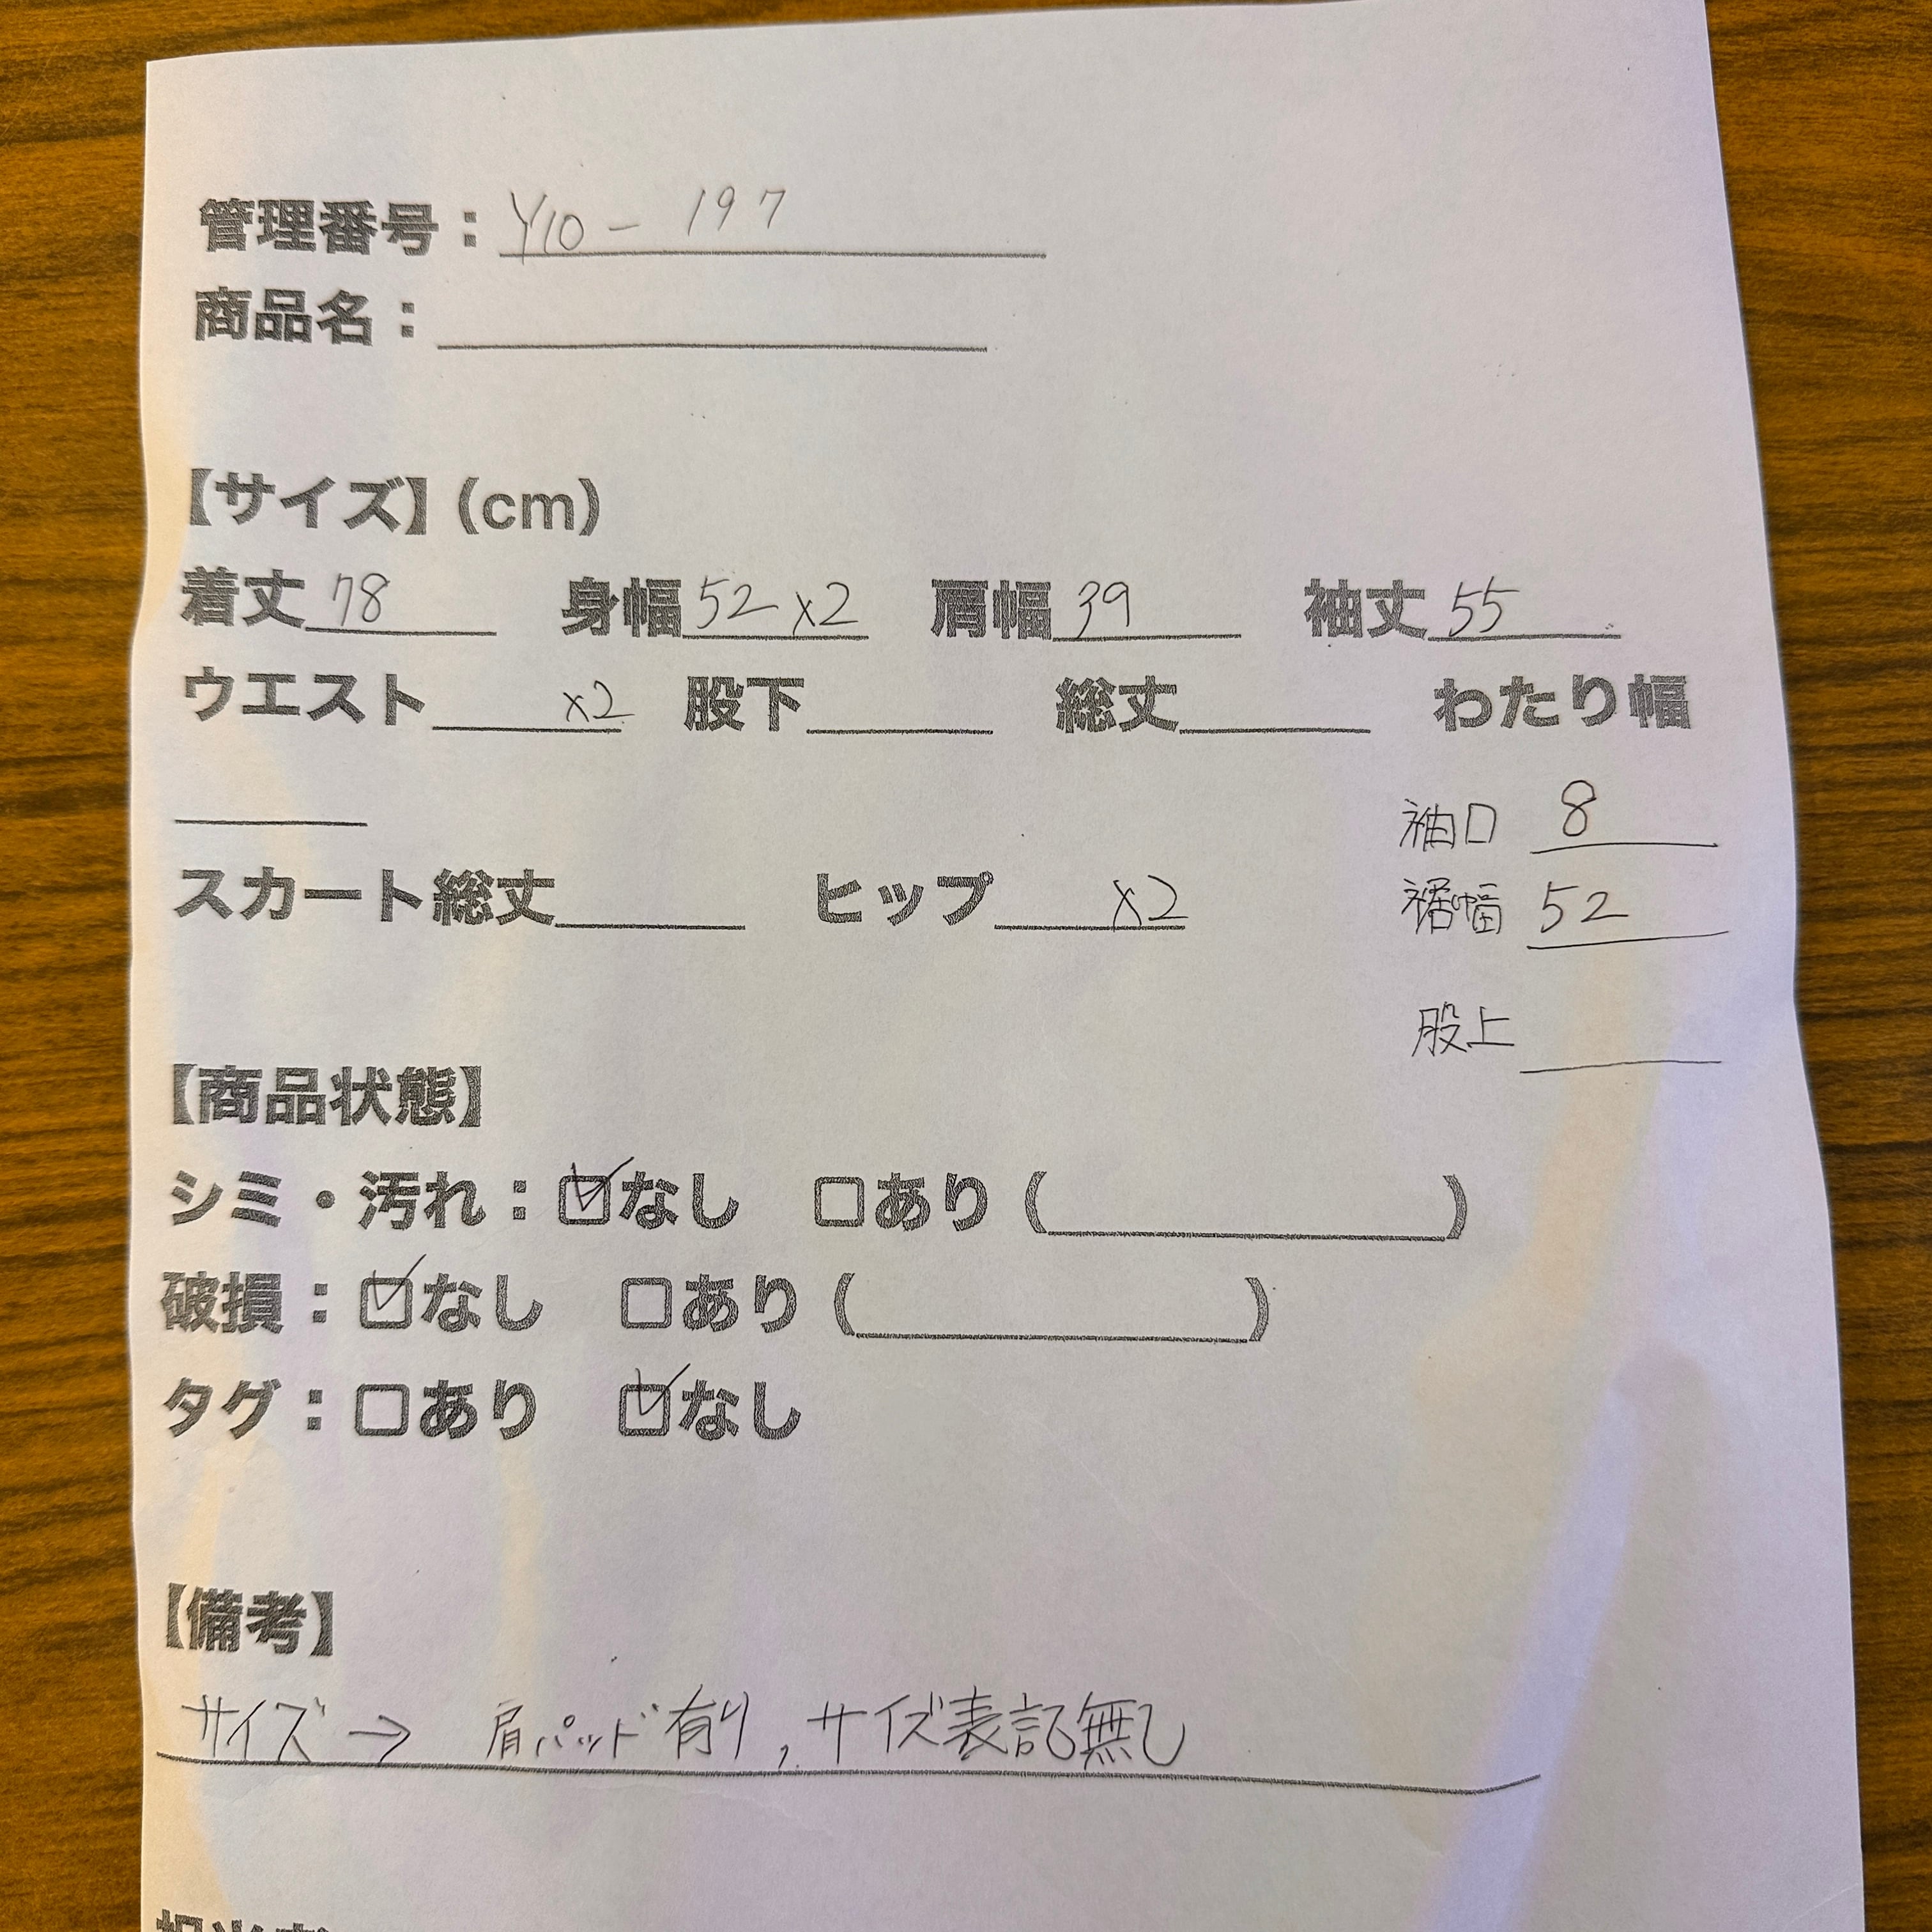 管理番号：Y10- 197
商品名：
【サイズ】（cm）
着丈 78 身幅 52 x2 肩幅 39 袖丈 55
ウエスト x2 股下 総丈 わたり幅
袖口 8
スカート総丈 ヒップ x2
裾幅 52
股上
【商品状態】
シミ・汚れ：☑なし □あり（ ）
破損：☑なし □あり（ ）
タグ：□あり ☑なし
【備考】
サイズ → 肩パッド有り, サイズ表記無し